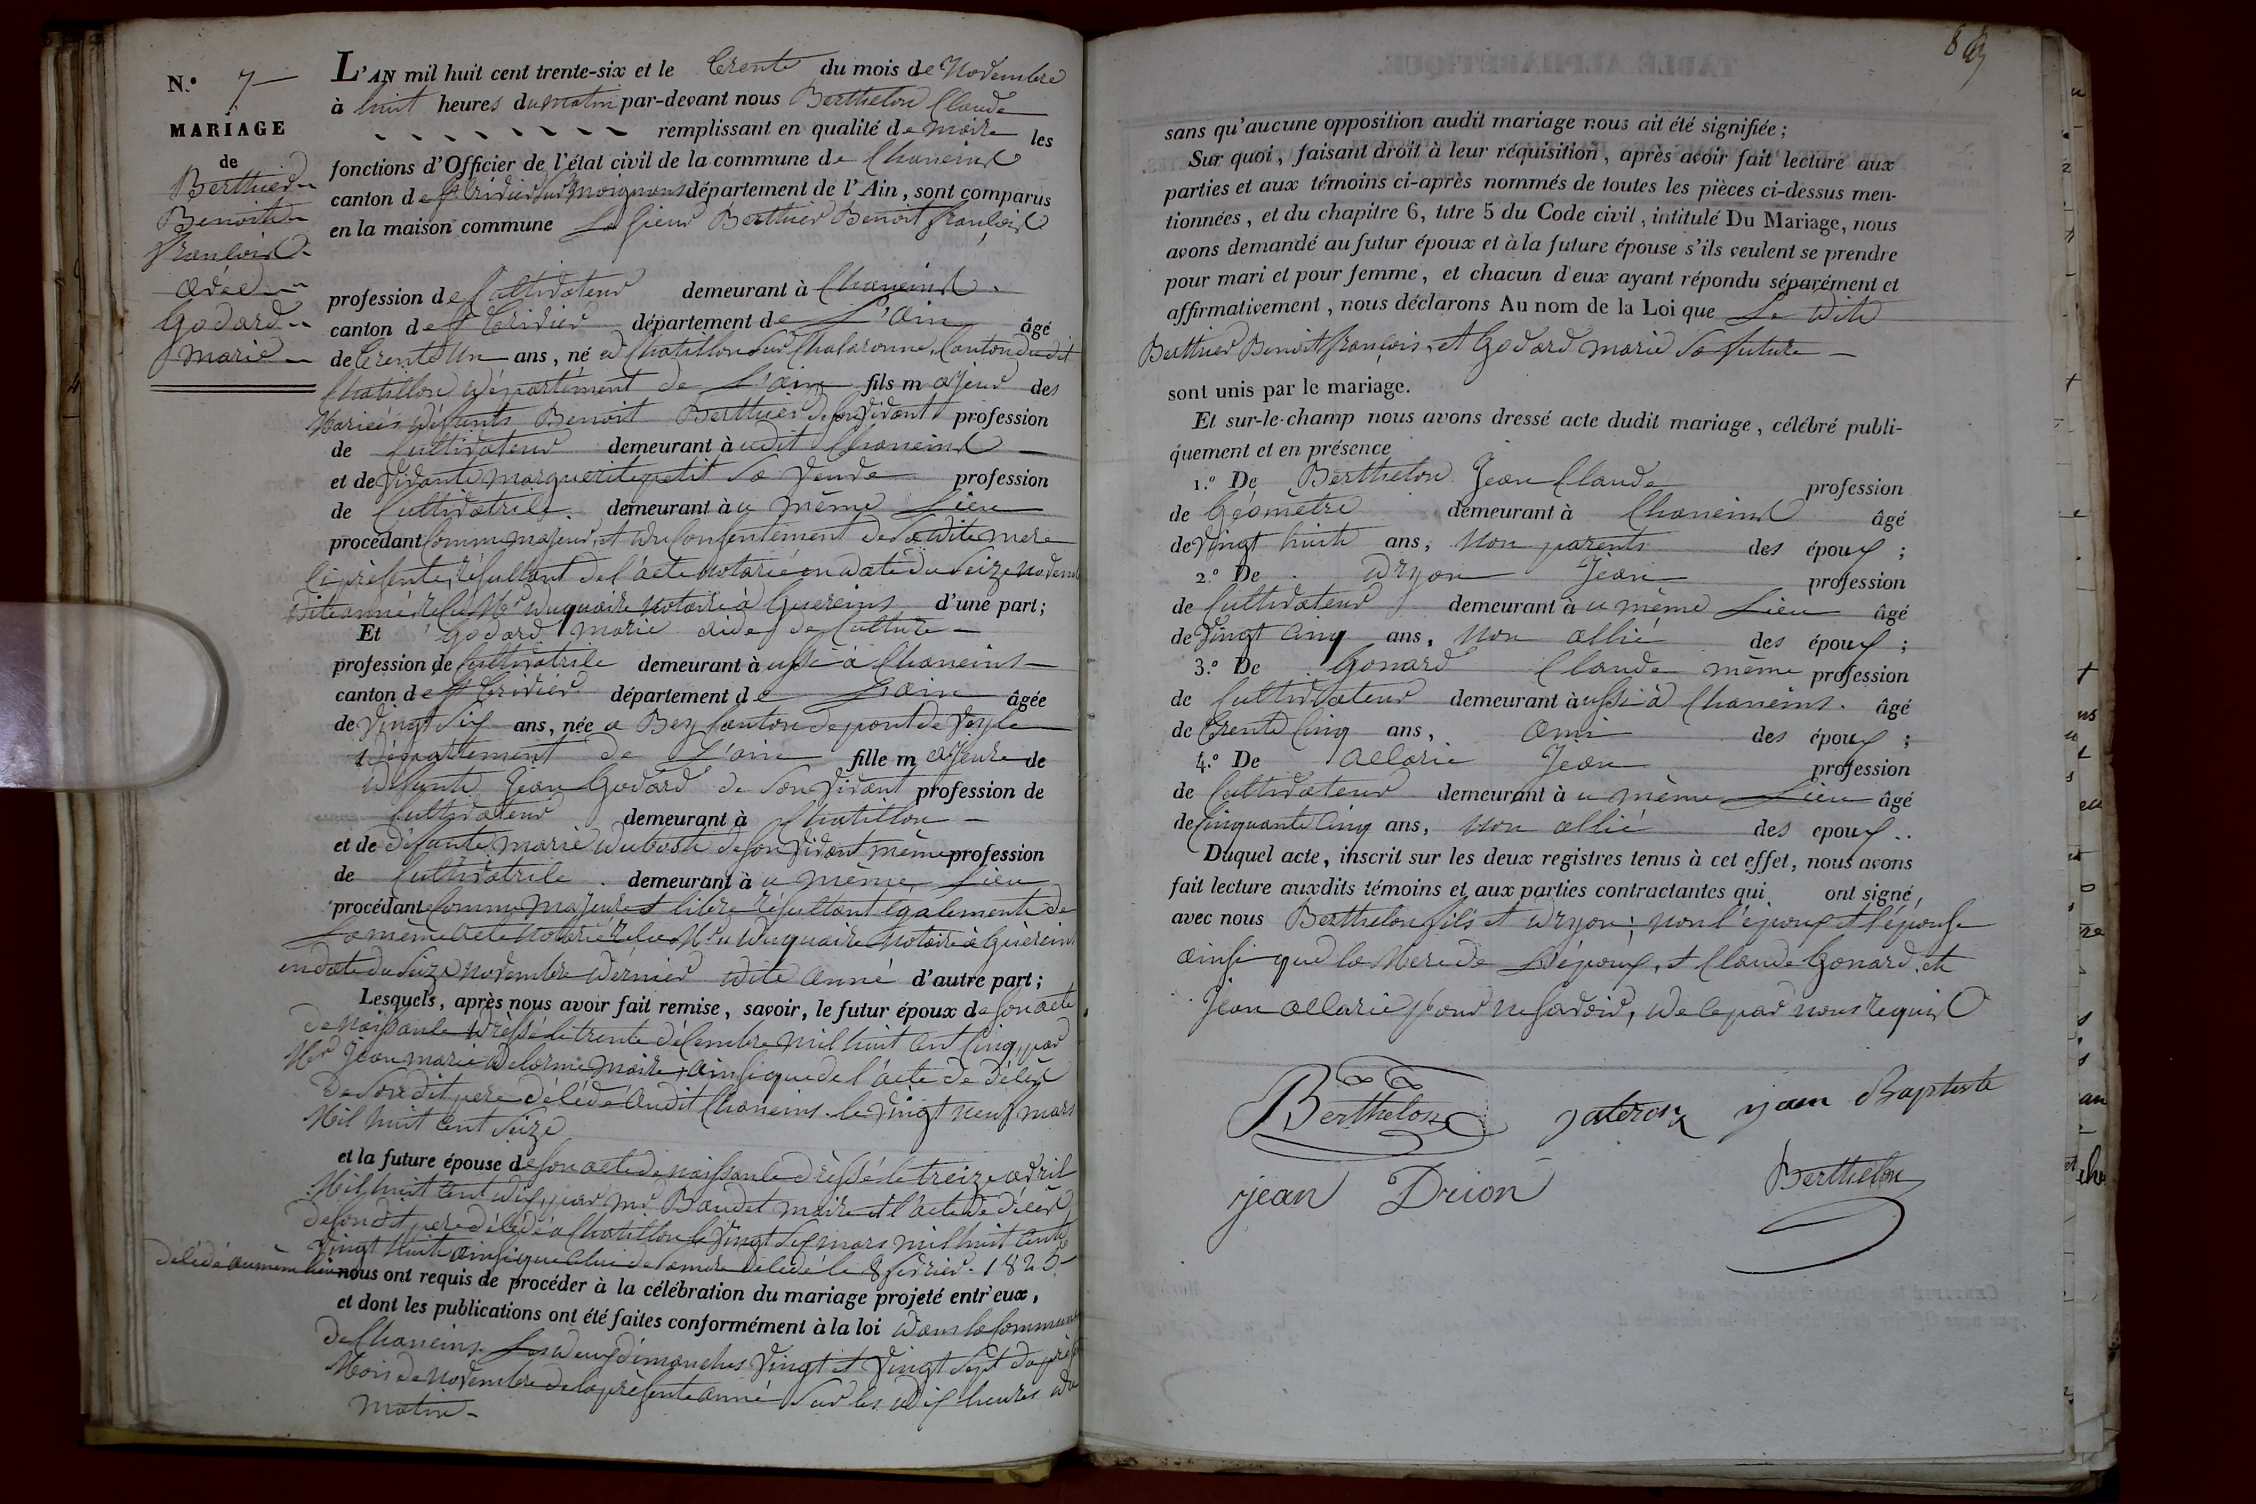 N.º 7
MARIAGE
de
Berthier
Benoit
François
avec
Godard
marie
L'AN mil huit cent trente-six et le trente du mois de Novembre
à huit heures du matin par-devant nous Berthelon Claude
remplissant en qualité de maire les
fonctions d'Officier de l'état civil de la commune de Chaneins
canton de St trivier sur moignans département de l'Ain, sont comparus
en la maison commune Le sieur Berthier Benoit françois
profession de Cultivateur demeurant à Chaneins.
canton de St trivier département de L'ain âgé
de trente Un ans, né à Chatillon sur Chalaronne, Canton dudit
Chatillon département de L'ain fils majeur des
Mariés défunts Benoit Berthier de son vivant profession
de Cultivateur demeurant à udit Chaneins
et de vivante marguerite petit Sa veuve profession
de Cultivatrice demeurant à u même Lieu
procédant Comme majeur, et du Consentement de Sadite mere
Ci présente, résultant de l'acte notarié en date du Seize novembre
dite anné, reçu Mr duquaire notaire à Guereins d'une part;
Et Godard marie aide de Culture
profession de Cultivatrice demeurant à ussi à Chaneins
canton de St trivier département de L'ain âgée
de vingt Six ans, née a Bey Canton de pont de Veyle
département de L'ain fille majeure de
défunt Jean Godard de Son vivant profession de
Cultivateur demeurant à Chatillon
et de défunte marie dubost de son vivant même profession
de Cultivatrice demeurant à u même Lieu
procédant Comme Majeure et libre résultant également de
Le même acte notarié reçu Mr duquaire Notaire à Guereins
en date du Seize novembre dernier dite anné d'autre part;
Lesquels, après nous avoir fait remise, savoir, le futur époux de son acte
de naissance dressé le trente décembre mil huit cent Cinq, par
Mr Jean marie delorme maire, ainsi que de l'acte de décès
de Son dit pere décédé audit Chaneins le vingt neuf mars
Mil huit Cent Seize
et la future épouse de son acte de naissance dressé le treize avril
Mil huit Cent dix, par Mr Baudet maire et l'acte de décès
de son dit pere décédé à Chatillon le vingt Six mars mil huit Cent
vingt huit ainsi que Celui de Sa mere décédé le 8 fevrier 1825
décédé au même lieu nous ont requis de procéder à la célébration du mariage projeté entr'eux,
et dont les publications ont été faites conformément à la loi dans la Commune
de Chaneins Les deux dimanches vingt et vingt Sept du présent
Mois de novembre de la présente anné Sur les dix heures du
matin
sans qu'aucune opposition audit mariage nous ait été signifiée;
Sur quoi, faisant droit à leur réquisition, après avoir fait lecture aux
parties et aux témoins ci-après nommés de toutes les pièces ci-dessus men-
tionnées, et du chapitre 6, titre 5 du Code civil, intitulé Du Mariage, nous
avons demandé au futur époux et à la future épouse s'ils veulent se prendre
pour mari et pour femme, et chacun d'eux ayant répondu séparément et
affirmativement, nous déclarons Au nom de la Loi que Le dit
Berthier Benoit françois, et Godard marie Sa future
sont unis par le mariage.
Et sur-le-champ nous avons dressé acte dudit mariage, célébré publi-
quement et en présence
1.º De Berthelon Jean Claude profession
de Géomètre demeurant à Chaneins âgé
de vingt huit ans, Non parents des époux;
2.º De dryon Jean profession
de Cultivateur demeurant à u même Lieu âgé
de vingt Cinq ans, Non allié des époux;
3.º De Gonard Claude même profession
de Cultivateur demeurant à ussi à Chaneins. âgé
de trente Cinq ans, ami des époux;
4.º De allarie Jean profession
de Cultivateur demeurant à u même Lieu âgé
de Cinquante Cinq ans, Non allié des époux..
Duquel acte, inscrit sur les deux registres tenus à cet effet, nous avons
fait lecture auxdits témoins et aux parties contractantes qui ont signé,
avec nous Berthelon fils et dryon; non l'epoux et l'épouse
ainsi que la Mere de L'époux, et Claude Gonard, et
Jean allarie pour ne savoir, de ce par nous requis
Berthelon
jean Baptiste
jean Drion
Berthelon